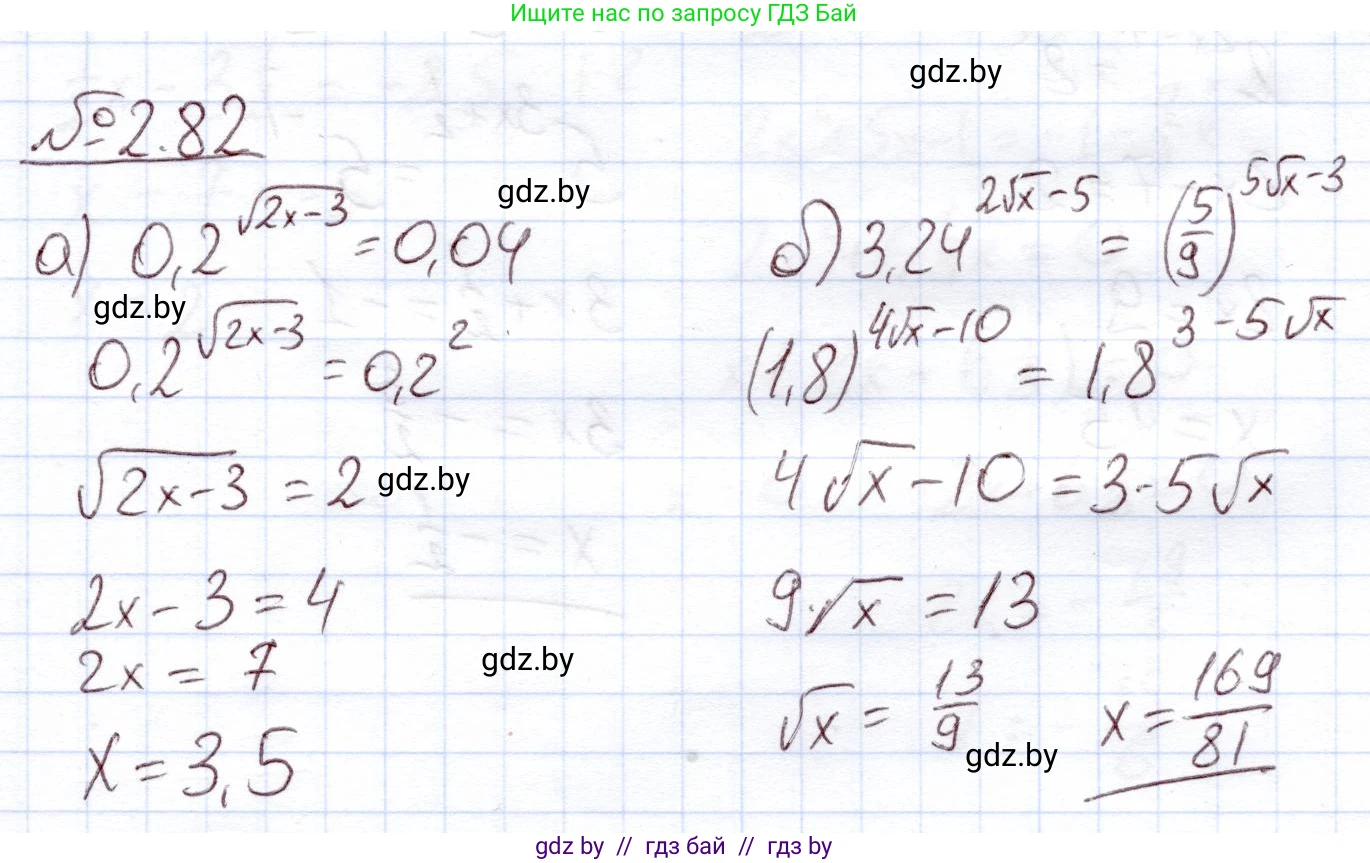 Ищите нас по запросу ГДЗ Бай
gdz.by
№2.82
gdz.by
а) 0,2^√(2x-3) = 0,04
gdz.by
0,2^√(2x-3) = 0,2^2
√(2x-3) = 2
gdz.by
2x - 3 = 4
2x = 7
gdz.by
x = 3,5
б) 3,24^(2√x - 5) = (5/9)^(5√x - 3)
(1,8)^(4√x - 10) = 1,8^(3 - 5√x)
4√x - 10 = 3 - 5√x
9·√x = 13
√x = 13/9 x = 169/81
gdz.by
gdz by // гдз бай // гдз by